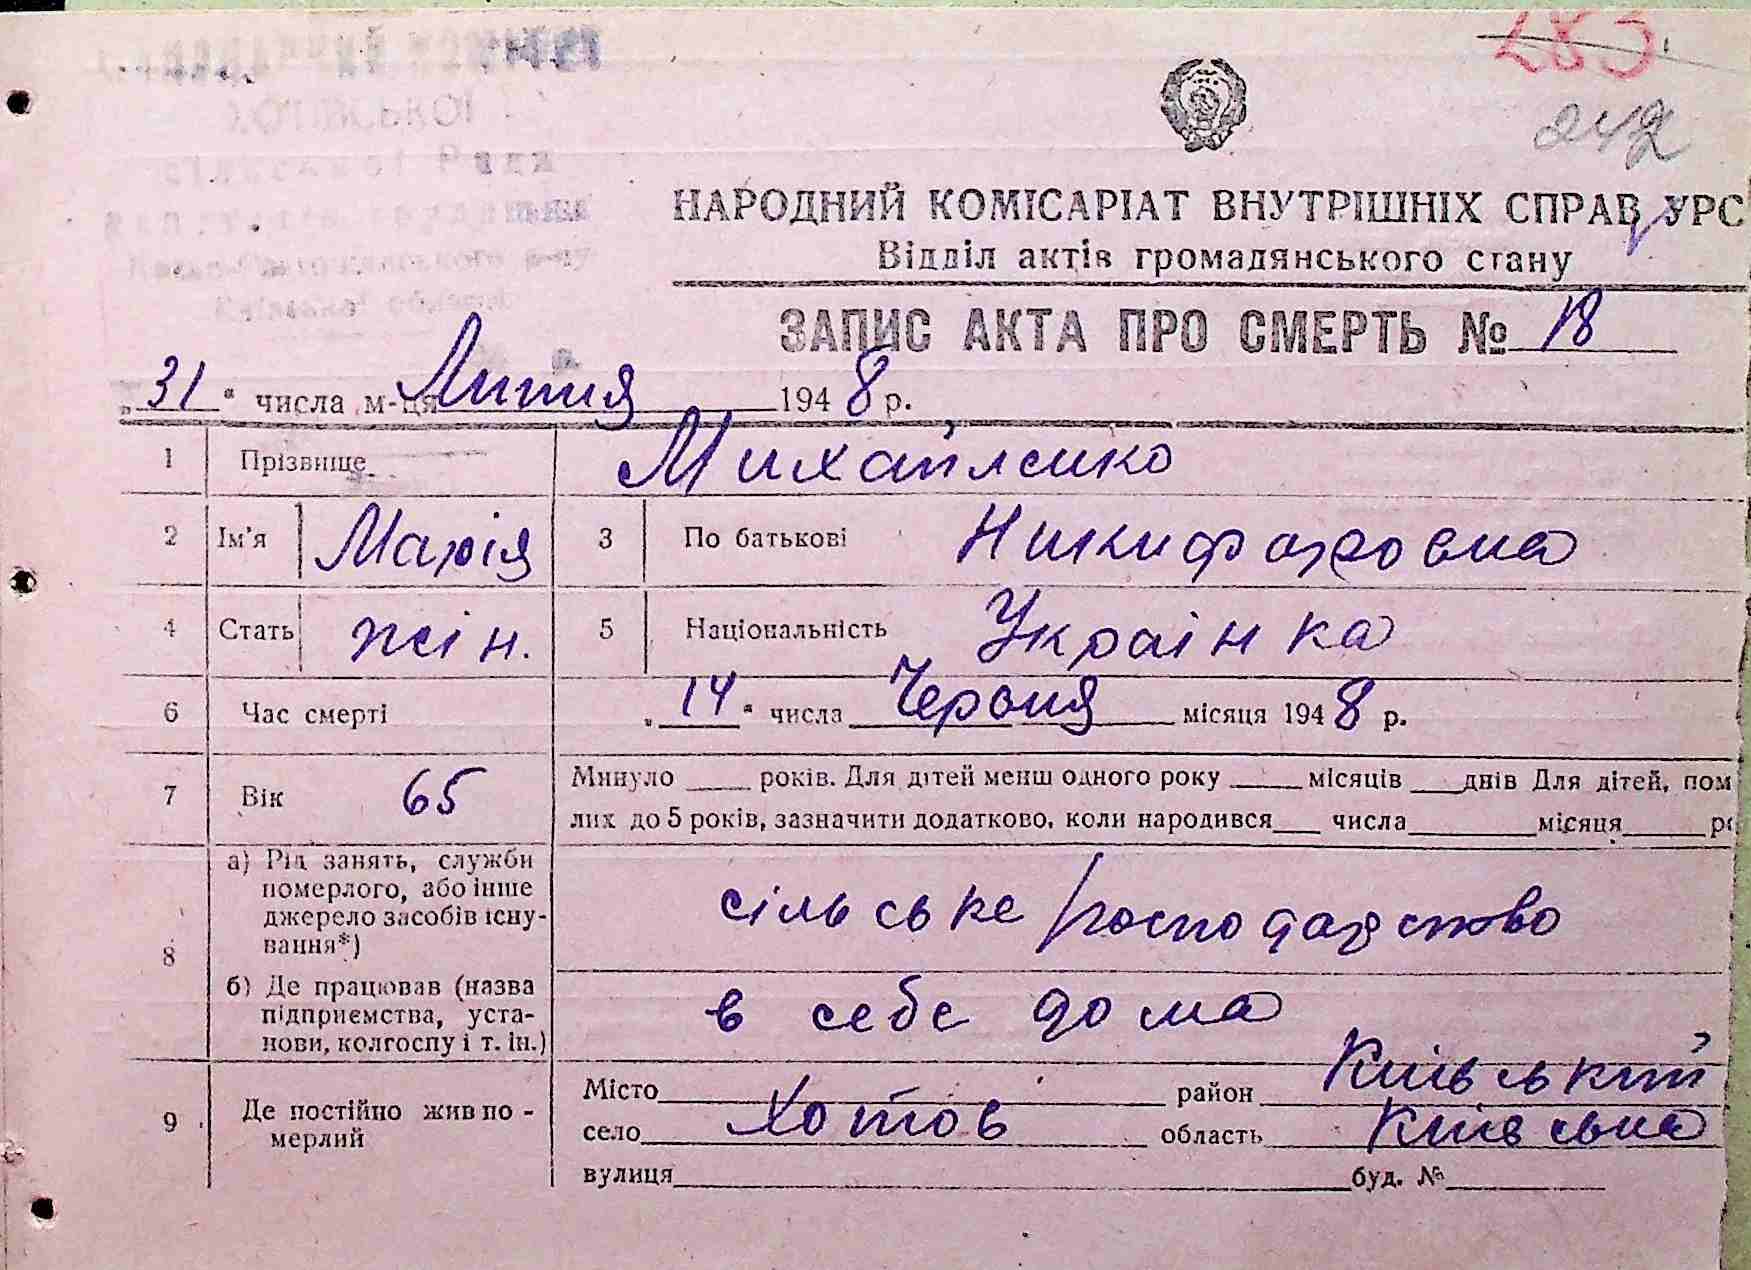 ХОТІВСЬКОЇ
сільської Ради
Київської області
283
242
НАРОДНИЙ КОМІСАРІАТ ВНУТРІШНІХ СПРАВ УРС
Відділ актів громадянського стану
ЗАПИС АКТА ПРО СМЕРТЬ № 18
„31“ числа м-ця Липня 1948 р.
1 Прізвище Михайленко
2 Ім'я Марія 3 По батькові Никифоровна
4 Стать жін. 5 Національність Украінка
6 Час смерті „14“ числа Червня місяця 1948 р.
7 Вік 65 Минуло ____ років. Для дітей менш одного року ____ місяців ____ днів Для дітей, пом
лих до 5 років, зазначити додатково, коли народився ____ числа ____ місяця ____ р
8 а) Рід занять, служби
померлого, або інше
джерело засобів існу-
вання*)
сільське господарство
б) Де працював (назва
підприємства, уста-
нови, колгоспу і т. ін.)
в себе дома
9 Де постійно жив по-
мерлий
Місто ____ район Київський
село Хотов область Київська
вулиця ____ буд. № ____